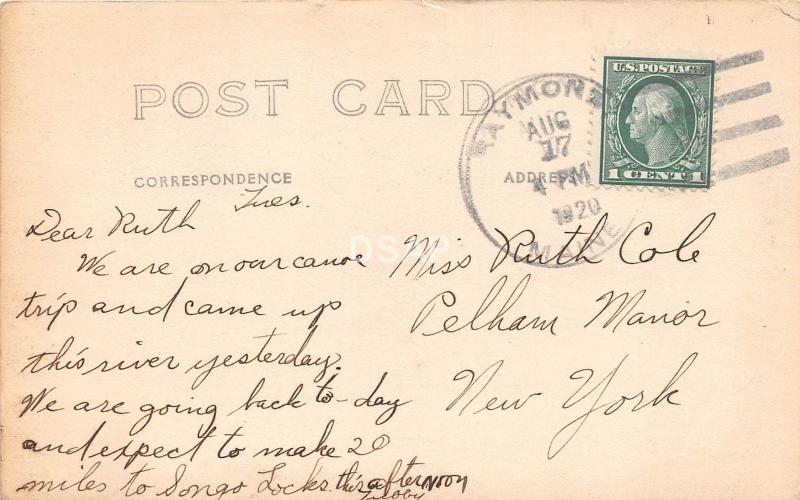 POST CARD
CORRESPONDENCE
ADDRESS
RAYMOND
AUG
17
PM
1920
MAINE
U.S. POSTAGE
1 CENT 1
Tues.
Dear Ruth
We are on our canoe
trip and came up
this river yesterday.
We are going back to-day
and expect to make 20
miles to Songo Locks this afternoon
Miss Ruth Cole
Pelham Manor
New York